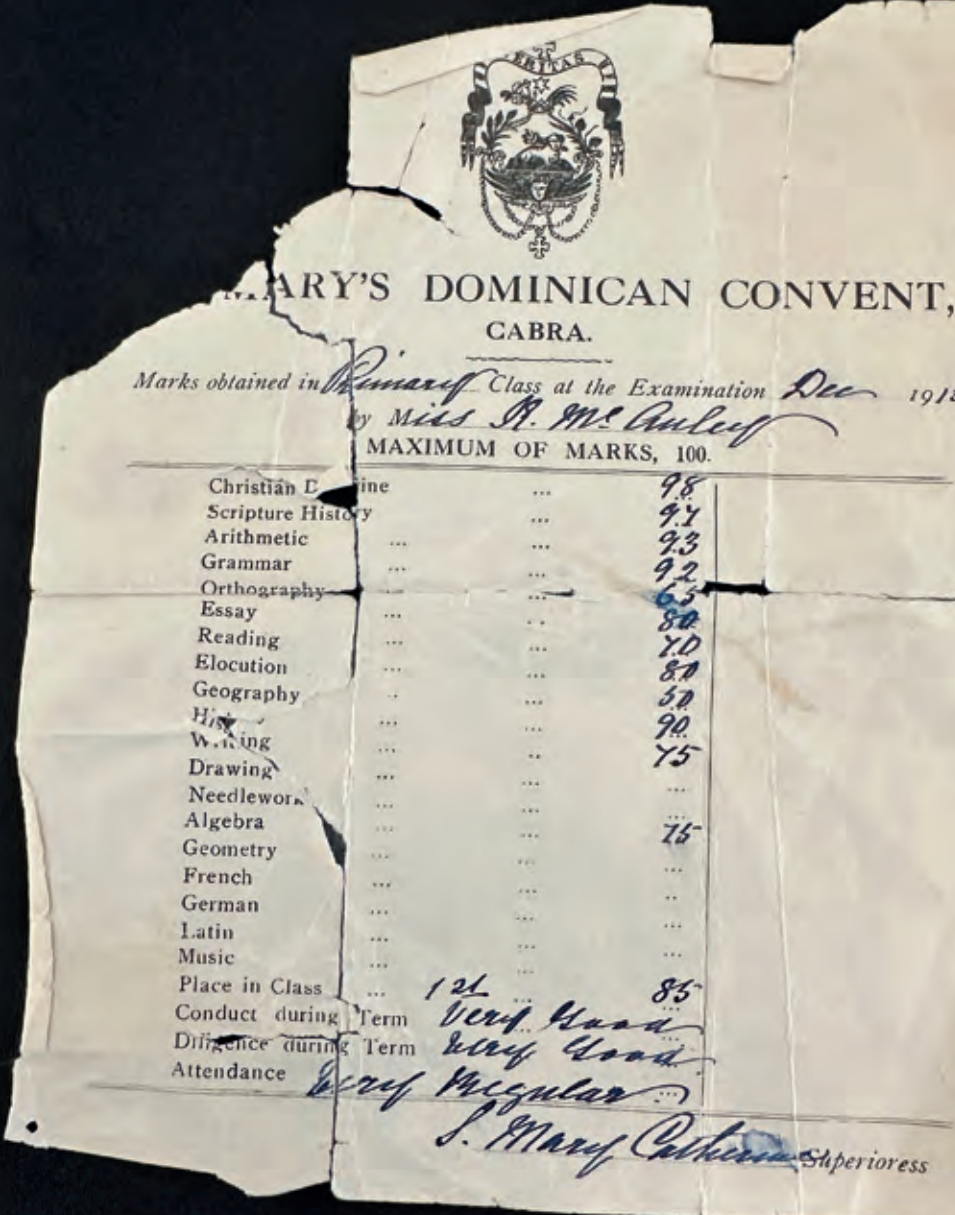 VERITAS
MARY'S DOMINICAN CONVENT,
CABRA.
Marks obtained in Primary Class at the Examination Dec 191
by Miss R. McAuley
MAXIMUM OF MARKS, 100.
Christian D ine ... 98
Scripture History ... 97
Arithmetic ... ... 93
Grammar ... ... 92
Orthography ... 65
Essay ... .. 80
Reading ... ... 70
Elocution ... ... 80
Geography .. ... 50
His ... ... 90
Writing ... .. 75
Drawing ... ... ...
Needlework ... ... ...
Algebra ... ... 75
Geometry ... ... ...
French ... ... ..
German ... ... ...
Latin ... ... ...
Music ... ...
Place in Class ... 1st ... 85
Conduct during Term Very Good
Diligence during Term Very Good
Attendance Very Regular ...
S. Mary Catherine Superioress